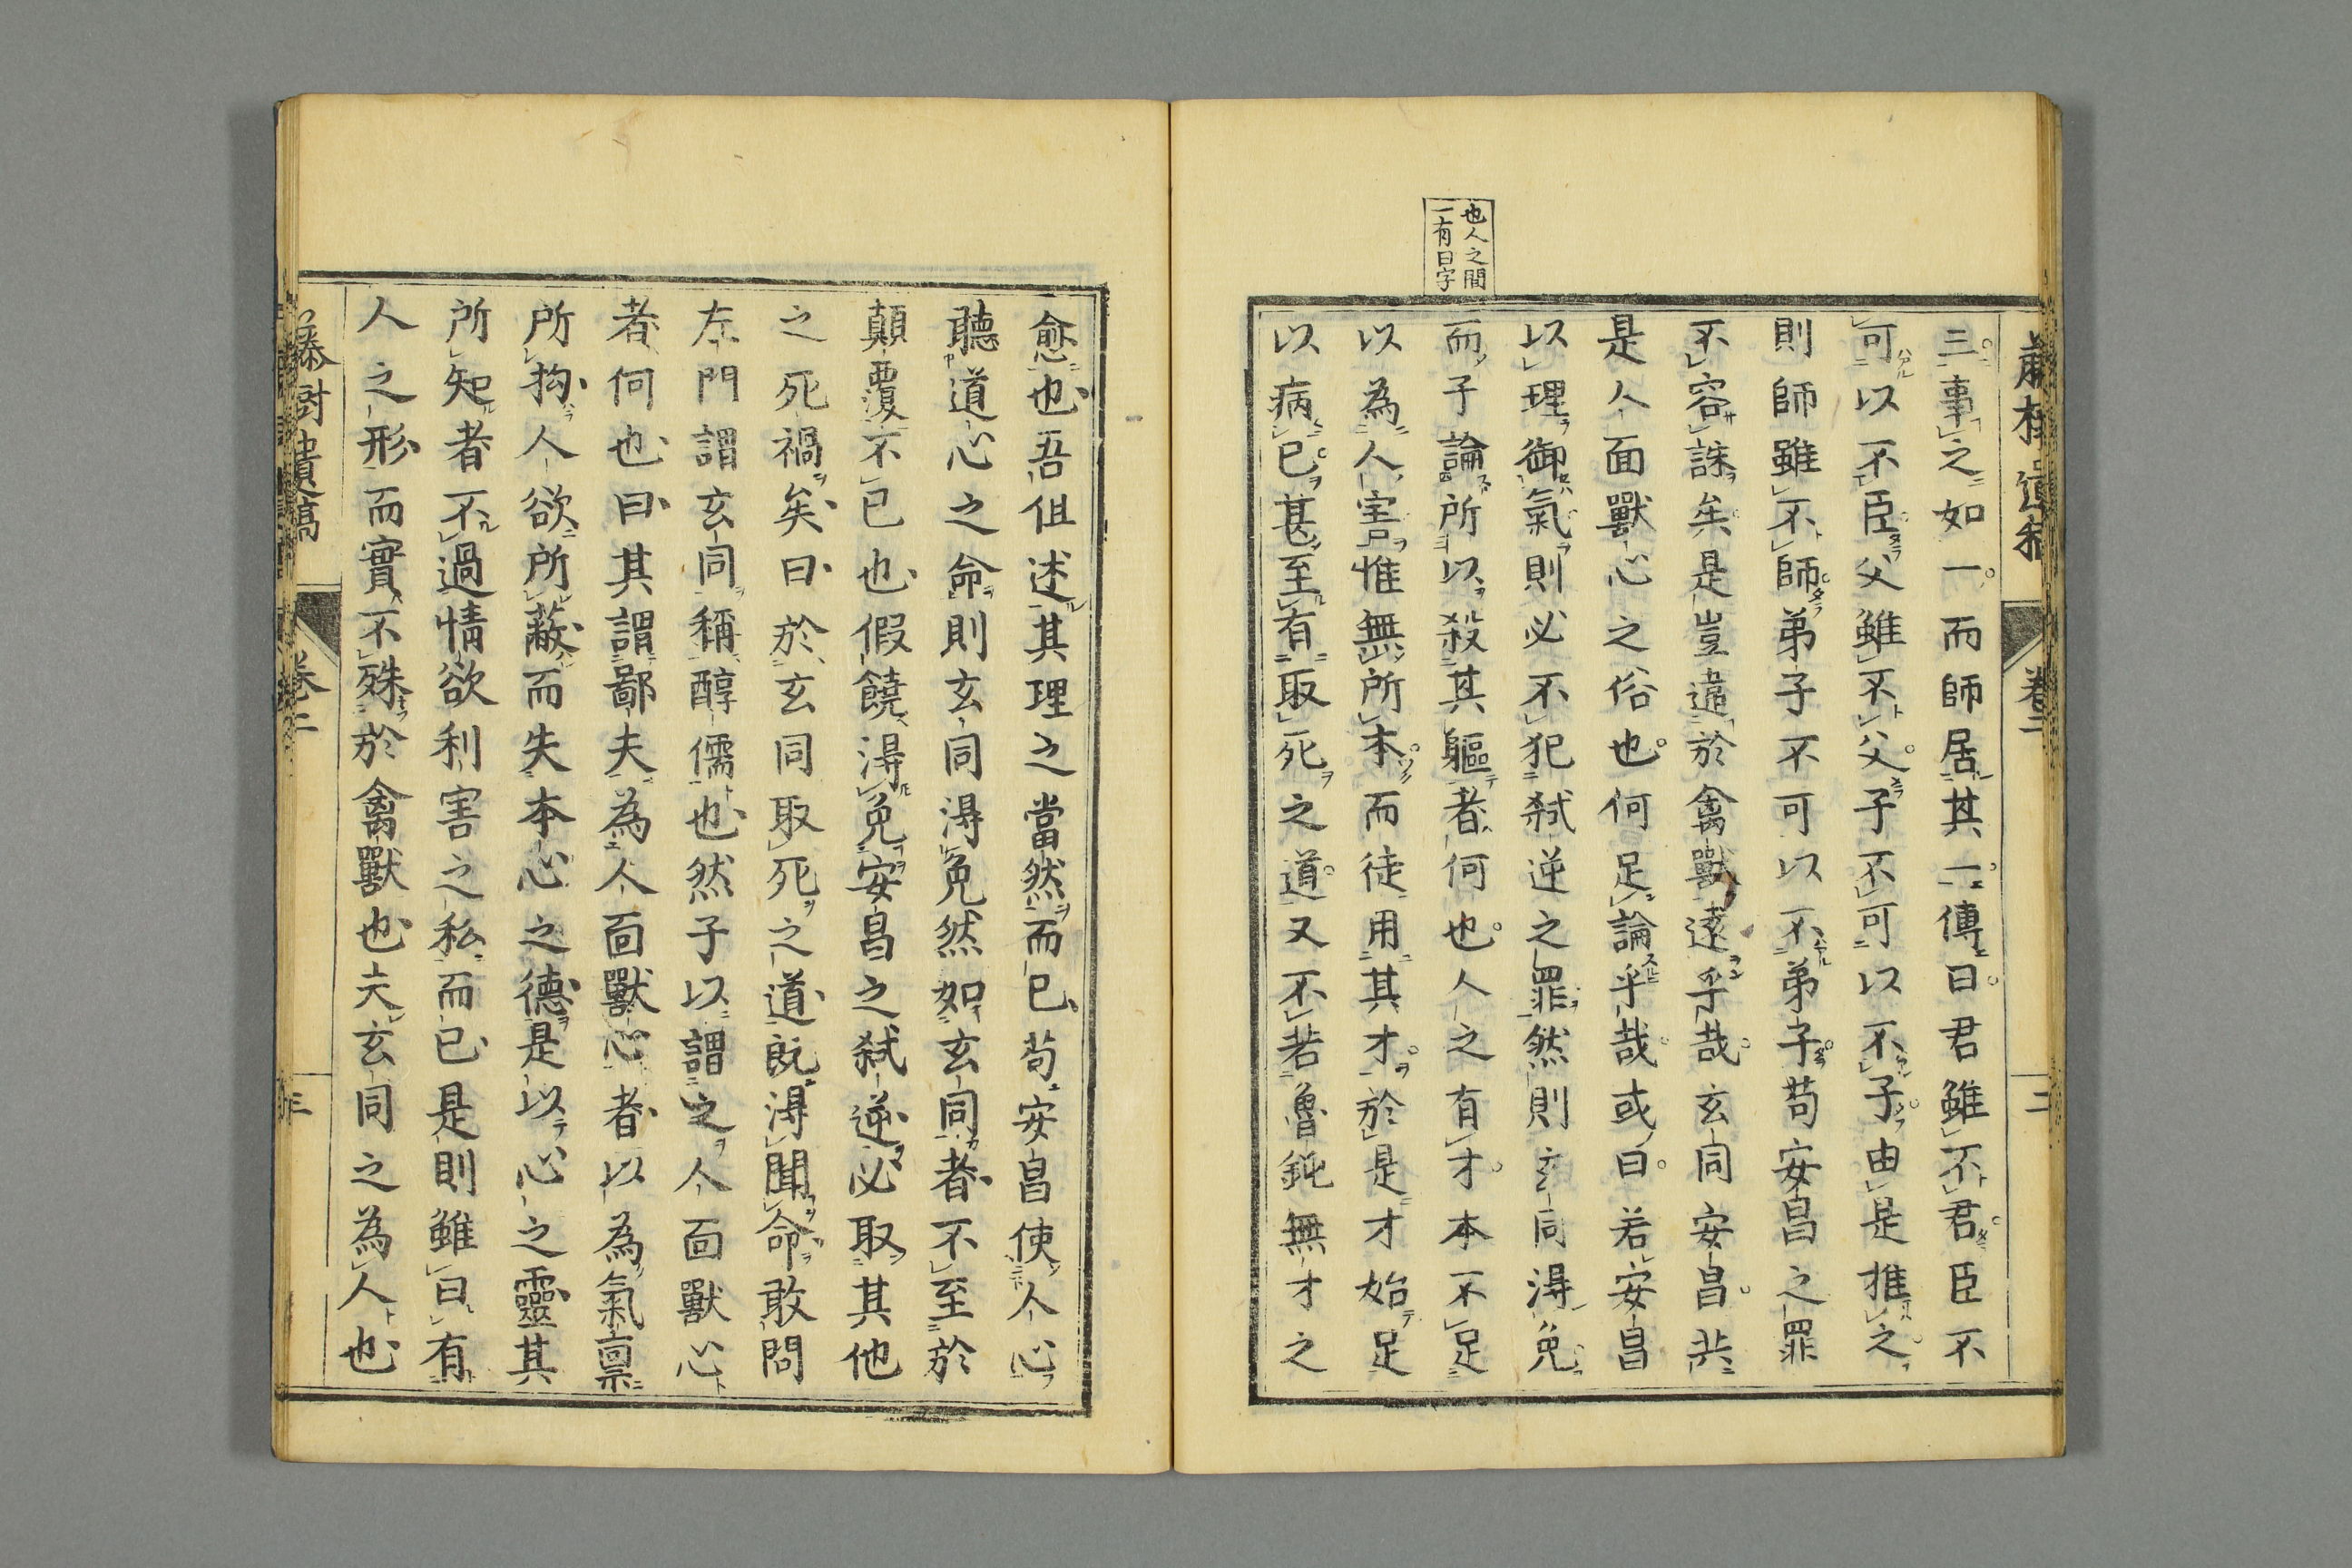 三事之如一而師居其一傳曰君雖不君臣不
可以不臣父雖不父子不可以不子由是推之
則師雖不師弟子不可以不弟子苟安昌之罪
不容誅矣是豈違於禽獸遠乎哉玄同安昌共
是人面獸心之俗也何足論乎哉或曰若安昌
以理御氣則必不犯弑逆之罪然則玄同得免
而子論所以殺其軀者何也人之有才本不足
以為人害惟無所本而徒用其才於是才始足
以病已甚至有取死之道又不若魯鈍無才之
也人之間
一有曰字
卷二
三
愈也吾但述其理之當然而已苟安昌使人心
聽道心之命則玄同得免然如玄同者不至於
顛覆不已也假饒得免安昌之弑逆必取其他
之死禍矣曰於玄同取死之道既得聞命敢問
左門謂玄同稱醇儒也然子以謂之人面獸心
者何也曰其謂鄙夫為人面獸心者以為氣稟
所拘人欲所蔽而失本心之德是以心之靈其
所知者不過情欲利害之私而已是則雖曰有
人之形而實不殊於禽獸也夫玄同之為人也
卷二
三